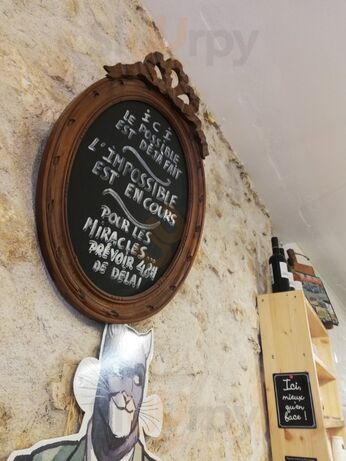 ici
LE POSSIBLE
EST DÉJÀ FAIT
L'IMPOSSIBLE
EST EN COURS
POUR LES
MIRACLES...
PRÉVOIR 48H
DE DÉLAI
Ici,
mieux
qu'en
face !